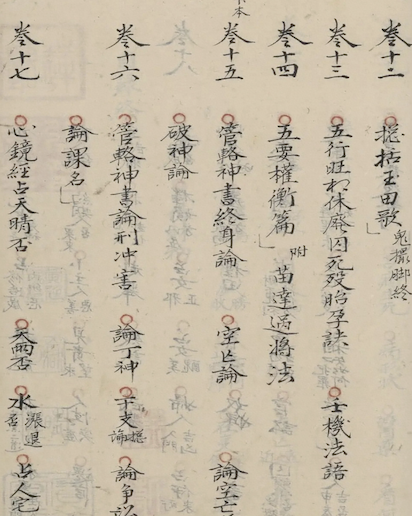 卷十二 總括玉田歌 鬼撮脚終
卷十三 五行旺相休廢囚死歿胎孕訣 士機法語
卷十四 五要權衡篇 附 苗達過將法
卷十五 管輅神書終身論 空亡論 論空亡
破神論
卷十六 管輅神書論刑冲害 論丁神 干支總論 論爭訟
論課名
卷十七 心鏡經占天晴否 天雨否 水漲退否 占人宅